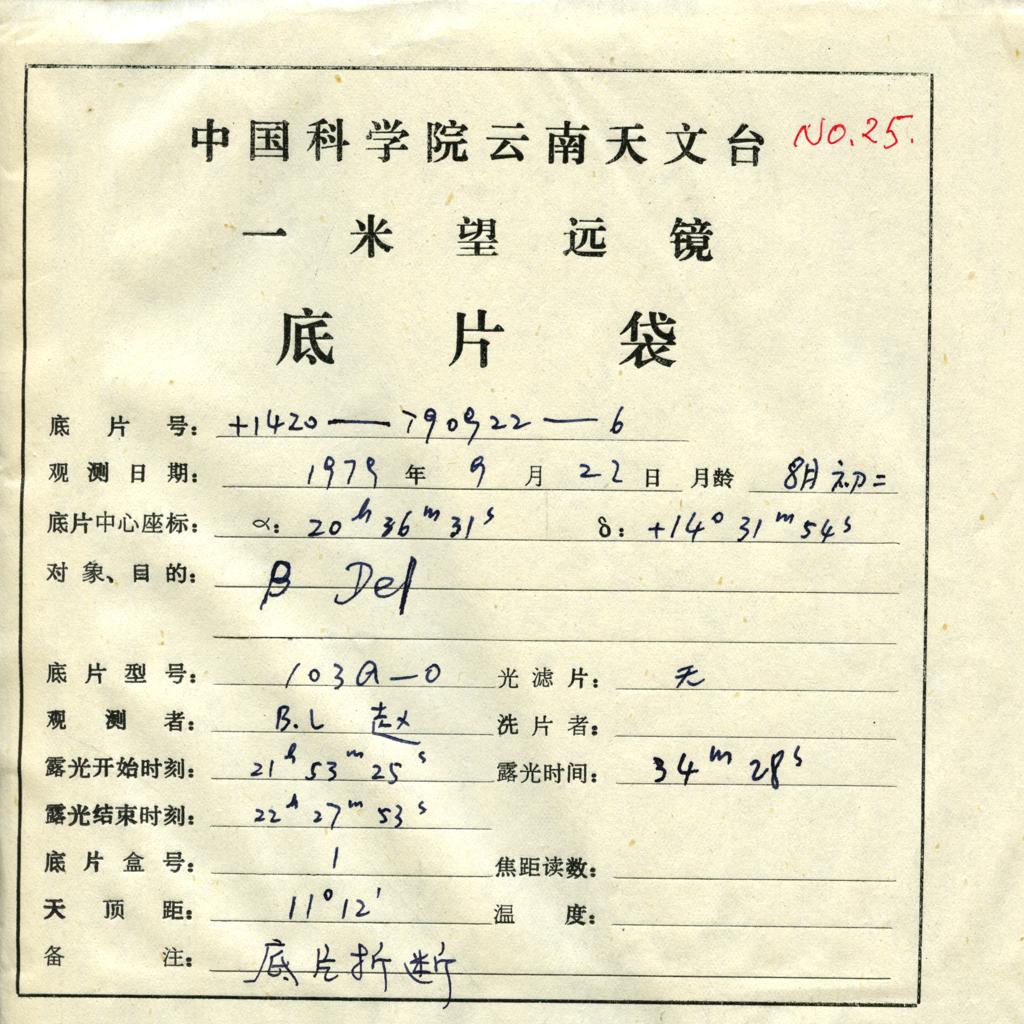 中国科学院云南天文台 NO.25.
一米望远镜
底片袋
底片号: +1420—790922—6
观测日期: 1979年9月22日 月龄 8月初二
底片中心座标: α: 20ʰ36ᵐ31ˢ δ: +14°31ᵐ54ˢ
对象、目的: β Del
底片型号: 103a—O 光滤片: 无
观测者: B.L 赵 洗片者:
露光开始时刻: 21ʰ53ᵐ25ˢ 露光时间: 34ᵐ28ˢ
露光结束时刻: 22ʰ27ᵐ53ˢ
底片盒号: 1 焦距读数:
天顶距: 11°12′ 温度:
备注: 底片折断